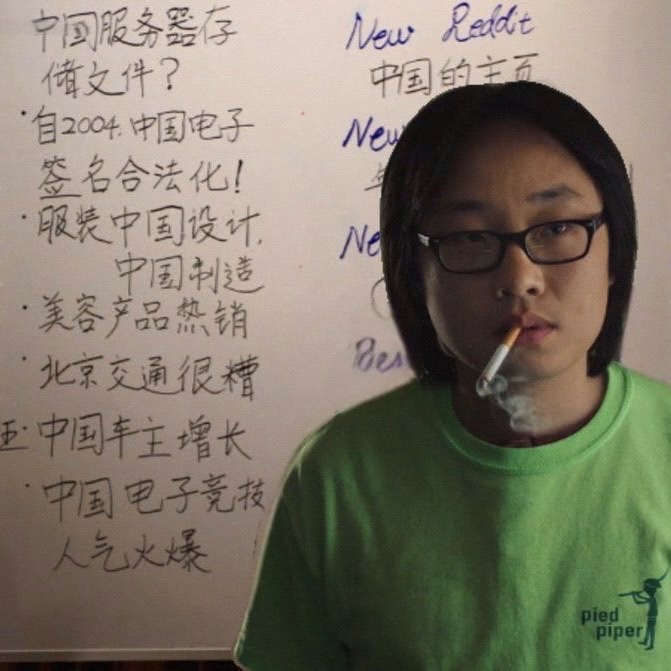 中国服务器存
储文件？
· 自2004.中国电子
签名合法化！
· 服装中国设计,
中国制造
· 美容产品热销
· 北京交通很糟
· 中国车主增长
· 中国电子竞技
人气火爆
New Reddit
中国的主页
New
Ne
Bes
pied
piper